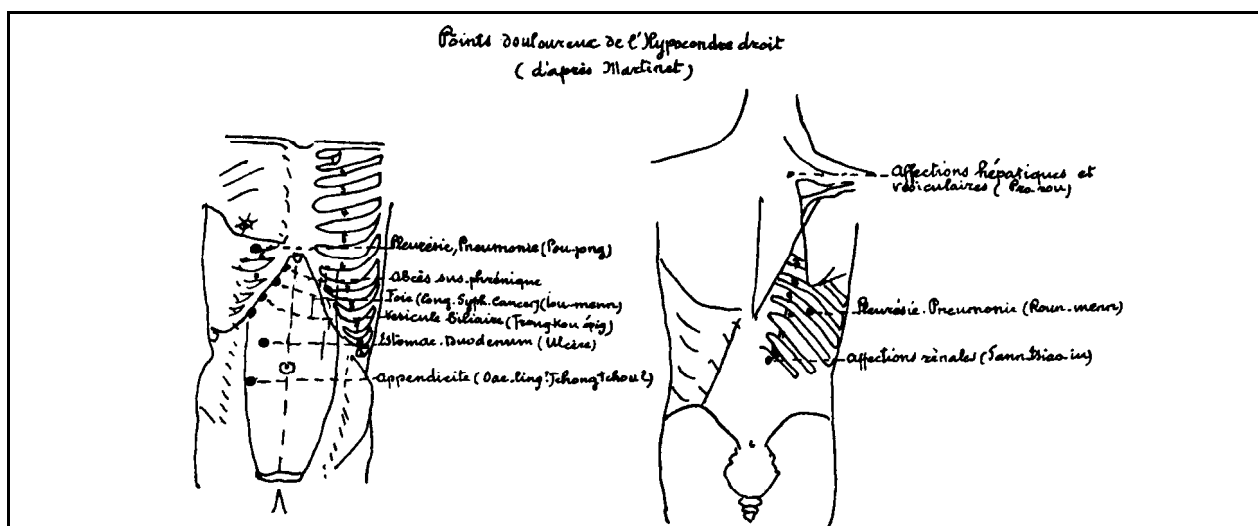 Points douloureux de l'Hypocondre droit
(d'après Martinet)
Pleurésie, Pneumonie (Pou-jong)
Abcès sus-phrénique
Foie (Cong. Syph. Cancer) (Leou-menn)
Vésicule Biliaire (
Estomac. Duodenum (Ulcère)
Appendicite (Dae-ling Tchong
Affections hépatiques et
vésiculaires (
Pleurésie. Pneumonie (Roun-menn)
Affections rénales (Sann-tsiao-iu)